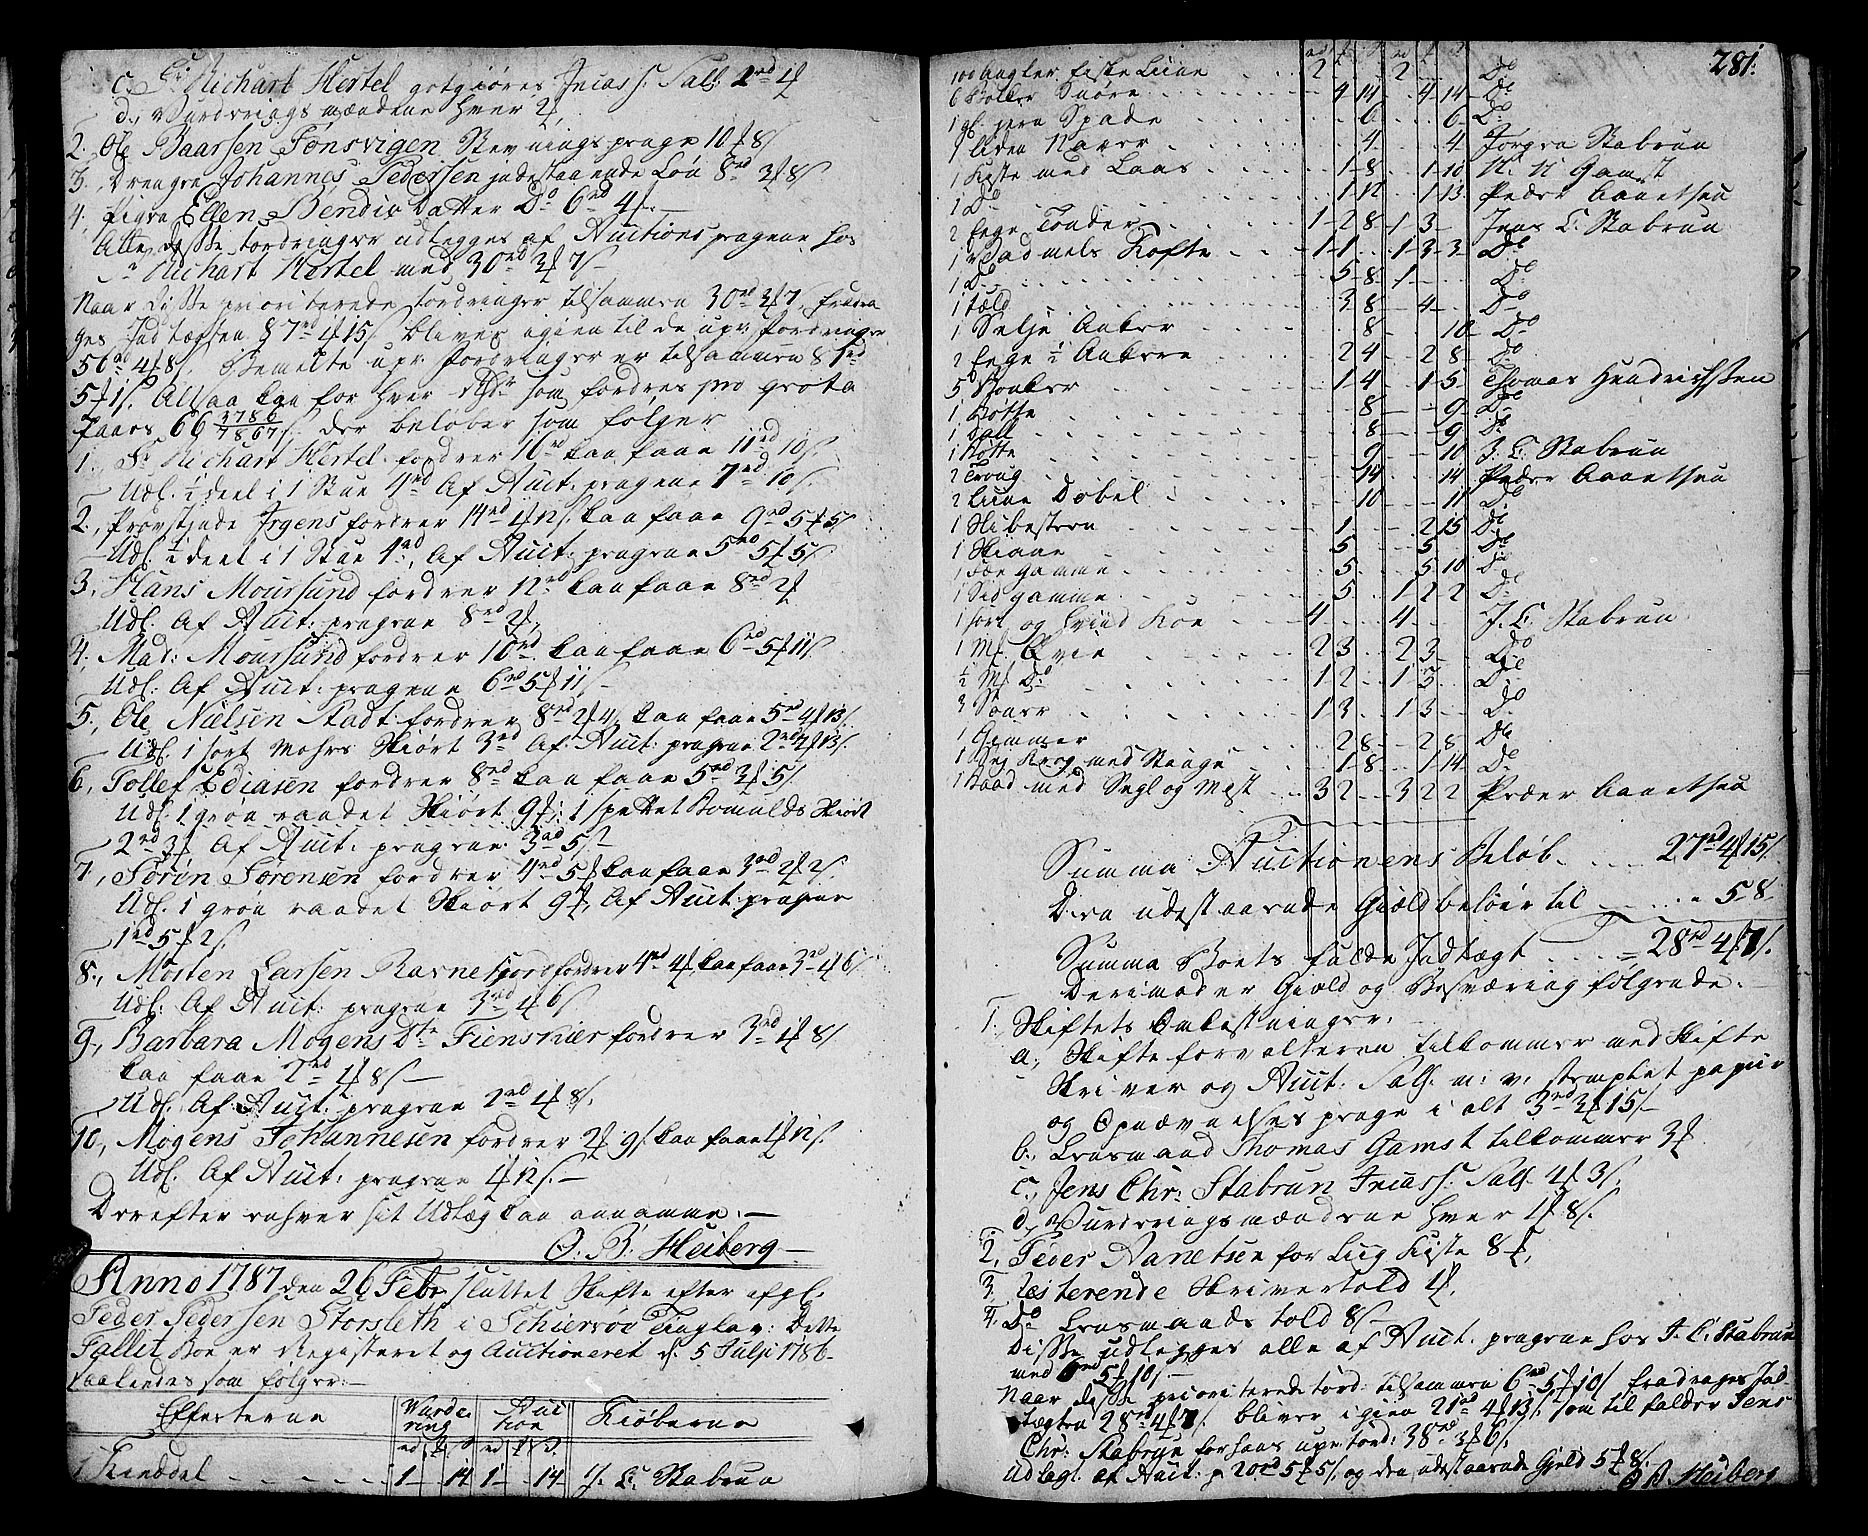 c, Sr. Richart Hertel gotgiøres Incass. Sall. 2rd 1
d, Vurderings mændene hver 2
2. Ole Baarsen Tønsvigen Revnings penge 10 8
3. Drengen Johannes Pedersen indestaaende Løn 8rd 3 8
4. Pigen Ellen Bendix datter Do 6rd 4
Alle disse fordringer udlegges af Auctions pengene hos
Sr Richart Hertel med 30rd 3 7
Naar disse prioriterede fordringer tilsammen 30rd 3 7 fradra
ges Indtægten 87rd 1 15 bliver igien til de upr. fordringer
56rd 4 8. Bemelte upr. fordringer er tilsammen 81rd
5 1. Altsaa kan for hver rdlr som fordres pro qvota
faaes 66 2786/7867 der beløber som følger
1. Sr. Richart Hertel fordrer 16rd kan faae 11rd 10.
Udl. ½ deel i 1 Stue 4rd Af Auct. pengene 7rd 10.
2., Provstinde Irgens fordrer 14rd 1 12 kan faae 9rd 5 5
Udl. ½ deel i 1 Stue 4rd, Af Auct. pengene 5rd 5 5
3, Hans Moursund fordrer 12rd kan faae 8rd 2
Udl. Af Auct. pengene 8rd 2,
4. Mad. Moursund fordrer 10rd kan faae 6rd 5 11
Udl. Af Auct. pengene 6rd 5 11
5., Ole Nielsen Stadt fordrer 8rd 2 4, kan faae 5rd 4 13
Udl. 1 sort Mohrs Skiørt 3rd Af Auct. pengene 2rd 4 13.
6, Tollef Ediasen fordrer 8rd kan faae 5rd 3 5
Udl. 1 grøn raadet Skiørt 9, 1 spettet Bomulds Skiørt
2rd 3 Af Auct. pengene 3rd 5
7, Søren Sørensen fordrer 4rd 5 kan faae 3rd 2 2.
Udl. 1 grøn raadet Skiørt 9, Af Auct. pengene
1rd 5 2.
8., Mosten Larsen Ravnefiord fordrer 4rd 4 kan faae 3rd 1 6
Udl. Af Auct. pengene 3rd 1 6
9., Barbara Mogens Dtr Fienskiær fordrer 3rd 1 8
kan faae 2rd 1 8
Udl. Af Auct. pengene 2rd 1 8.
10, Mogens Johannesen fordrer 2 9 kan faae 1 12.
Udl. Af Auct. pengene 1 12.
Derefter enhver sit Udlæg kan annamme.
O. B. Heiberg
Anno 1787 den 26 Febr. sluttet Skifte efter afgl.
Peder Pedersen Storsleth i Schiersøe Tinglav. Dette
Fallit Boe er Registeret og Auctioneret d. 5 Julji 1786
saaledes som følger:
Effecterne Vurdering Auction Kiøberne
1 1 14 1 14 J. C. Stabrun
281.
100 Angler Fiske Line 2 2 Do
6 Snøre 4 14 4 14 Do
1 gl. jern Spade 6 6 Do
1 liden Naver 4 4 Jørgen Stabrun
1 Kiste med Laas 1 8 1 10 N. N Gamst
1 Do 1 12 1 13 Peder Aanetsen
2 Tønder 1 2 8 1 3 Jens C. Stabrun
1 Vadmels Kofte 1 1 1 3 3 Do
1 Do 5 8 1 Do
1 fæld 3 8 4 Do
1 Selje Anker 8 10 Do
2 ½ Ankere 2 4 2 8 Do
5 Stamper 1 4 1 5 Thomas Hendrichssen
1 Bøtte 8 9 Do
1 Ball 8 9 Do
1 Bøtte 9 10 J. C. Stabrun
2 Troug 14 14 Peder Aanetsen
2 Line Døbel 10 11 Do
1 Slibesteen 1 2 15 Do
1 5 5 Do
1 Foer gamme 5 5 10 Do
1 gamme 5 1 2 2 Do
1 sort og hvid Koe 4 4 J. C. Stabrun
1 Ml. Qvie 2 3 2 3 Do
½ Ml Do 1 2 1 3 Do
3 Souer 1 3 1 3 Do
1 Gimmer 2 8 2 8 Do
1 med Stange 1 8 1 14 Do
1 Baad med Segl og Mast 3 2 3 2 2 Peder Aanetsen
Summa Auctionens Beløb 27rd 4 15
Den udestaaende Gield beløber til 5 8
Summa Boets fulde Indtægt 28rd 4 7.
Derimod er Gield og Besværing følgende.
1. Skiftets Omkostninger.
a, Skifteforvalteren tilkommer med Skifte
Skriver og Auct. Sall. m. v. stemplet papiir
og Opnævnelses penge i alt 3rd 3 15
b., Lensmand Thomas Gamst tilkommer 3
c, Jens Chr. Stabrun Incass. Sall. 4 3.
d, Vurderings mændene hver 1 8.
2, Peder Aanetsen for Liig Kiste 8,
3, resterende Skrivertold 1.
4. Do Lensmands told 8
Disse udlegges alle af Auct. pengene hos J. C. Stabrun
med 6rd 5 10
Naar disse prioriterede ford. tilsammen 6rd 5 10 fradrages Ind-
tægten 28rd 4 7 bliver igien 21rd 4 13, som tilfalder Jens
Chr. Stabrun for hans upr. ford. 38rd 3 6.
Udlagt af Auct. p. 20rd 5 5 og den udestaaende Gield 5 8.
O B Heiberg